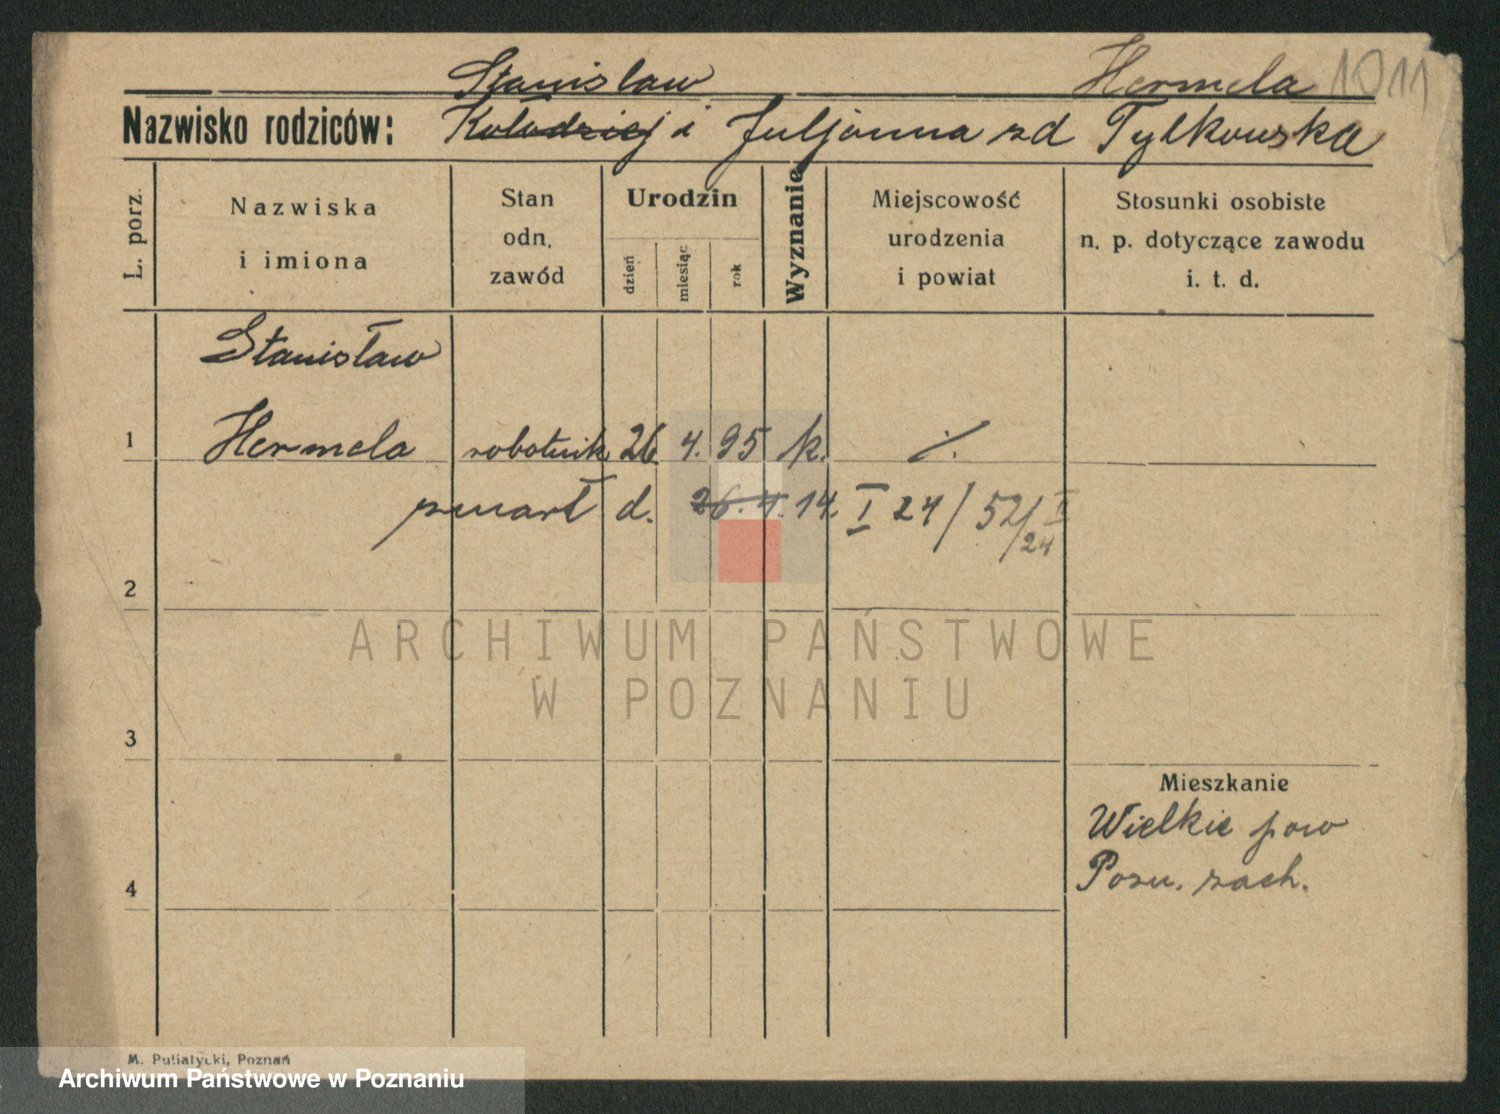 Stanisław Hermela 1011
Nazwisko rodziców: Kołodziej i Juljanna zd Tylkowska
L. porz.
Nazwiska
i imiona
Stan
odn.
zawód
Urodzin
dzień
miesiąc
rok
Wyznanie
Miejscowość
urodzenia
i powiat
Stosunki osobiste
n. p. dotyczące zawodu
i. t. d.
Stanisław
1 Hermela robotnik 26 4. 95 k. ./.
zmarł d. 26. 4. 14. I 24 / 52/I
24
2
ARCHIWUM PAŃSTWOWE
W POZNANIU
3
Mieszkanie
Wielkie pow
4 Pozn. zach.
M. Putiatycki, Poznań
Archiwum Państwowe w Poznaniu